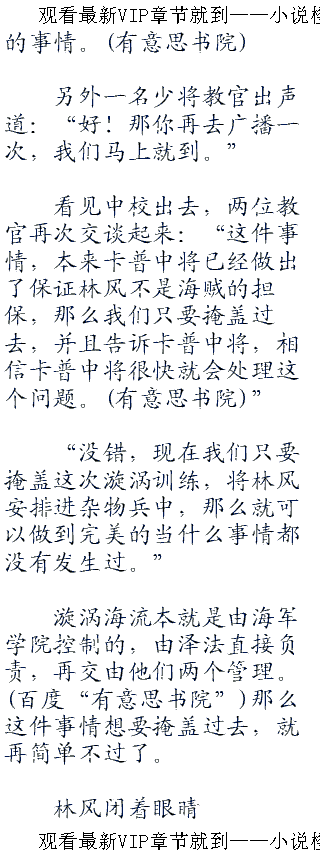 观看最新VIP章节就到——小说
的事情。(有意思书院)
另外一名少将教官出声
道：“好！那你再去广播一
次，我们马上就到。”
看见中校出去，两位教
官再次交谈起来：“这件事
情，本来卡普中将已经做出
了保证林风不是海贼的担
保，那么我们只要掩盖过
去，并且告诉卡普中将，相
信卡普中将很快就会处理这
个问题。(有意思书院)”
“没错，现在我们只要
掩盖这次漩涡训练，将林风
安排进杂物兵中，那么就可
以做到完美的当什么事情都
没有发生过。”
漩涡海流本就是由海军
学院控制的，由泽法直接负
责，再交由他们两个管理。
(百度“有意思书院”)那么
这件事情想要掩盖过去，就
再简单不过了。
林风闭着眼睛
观看最新VIP章节就到——小说